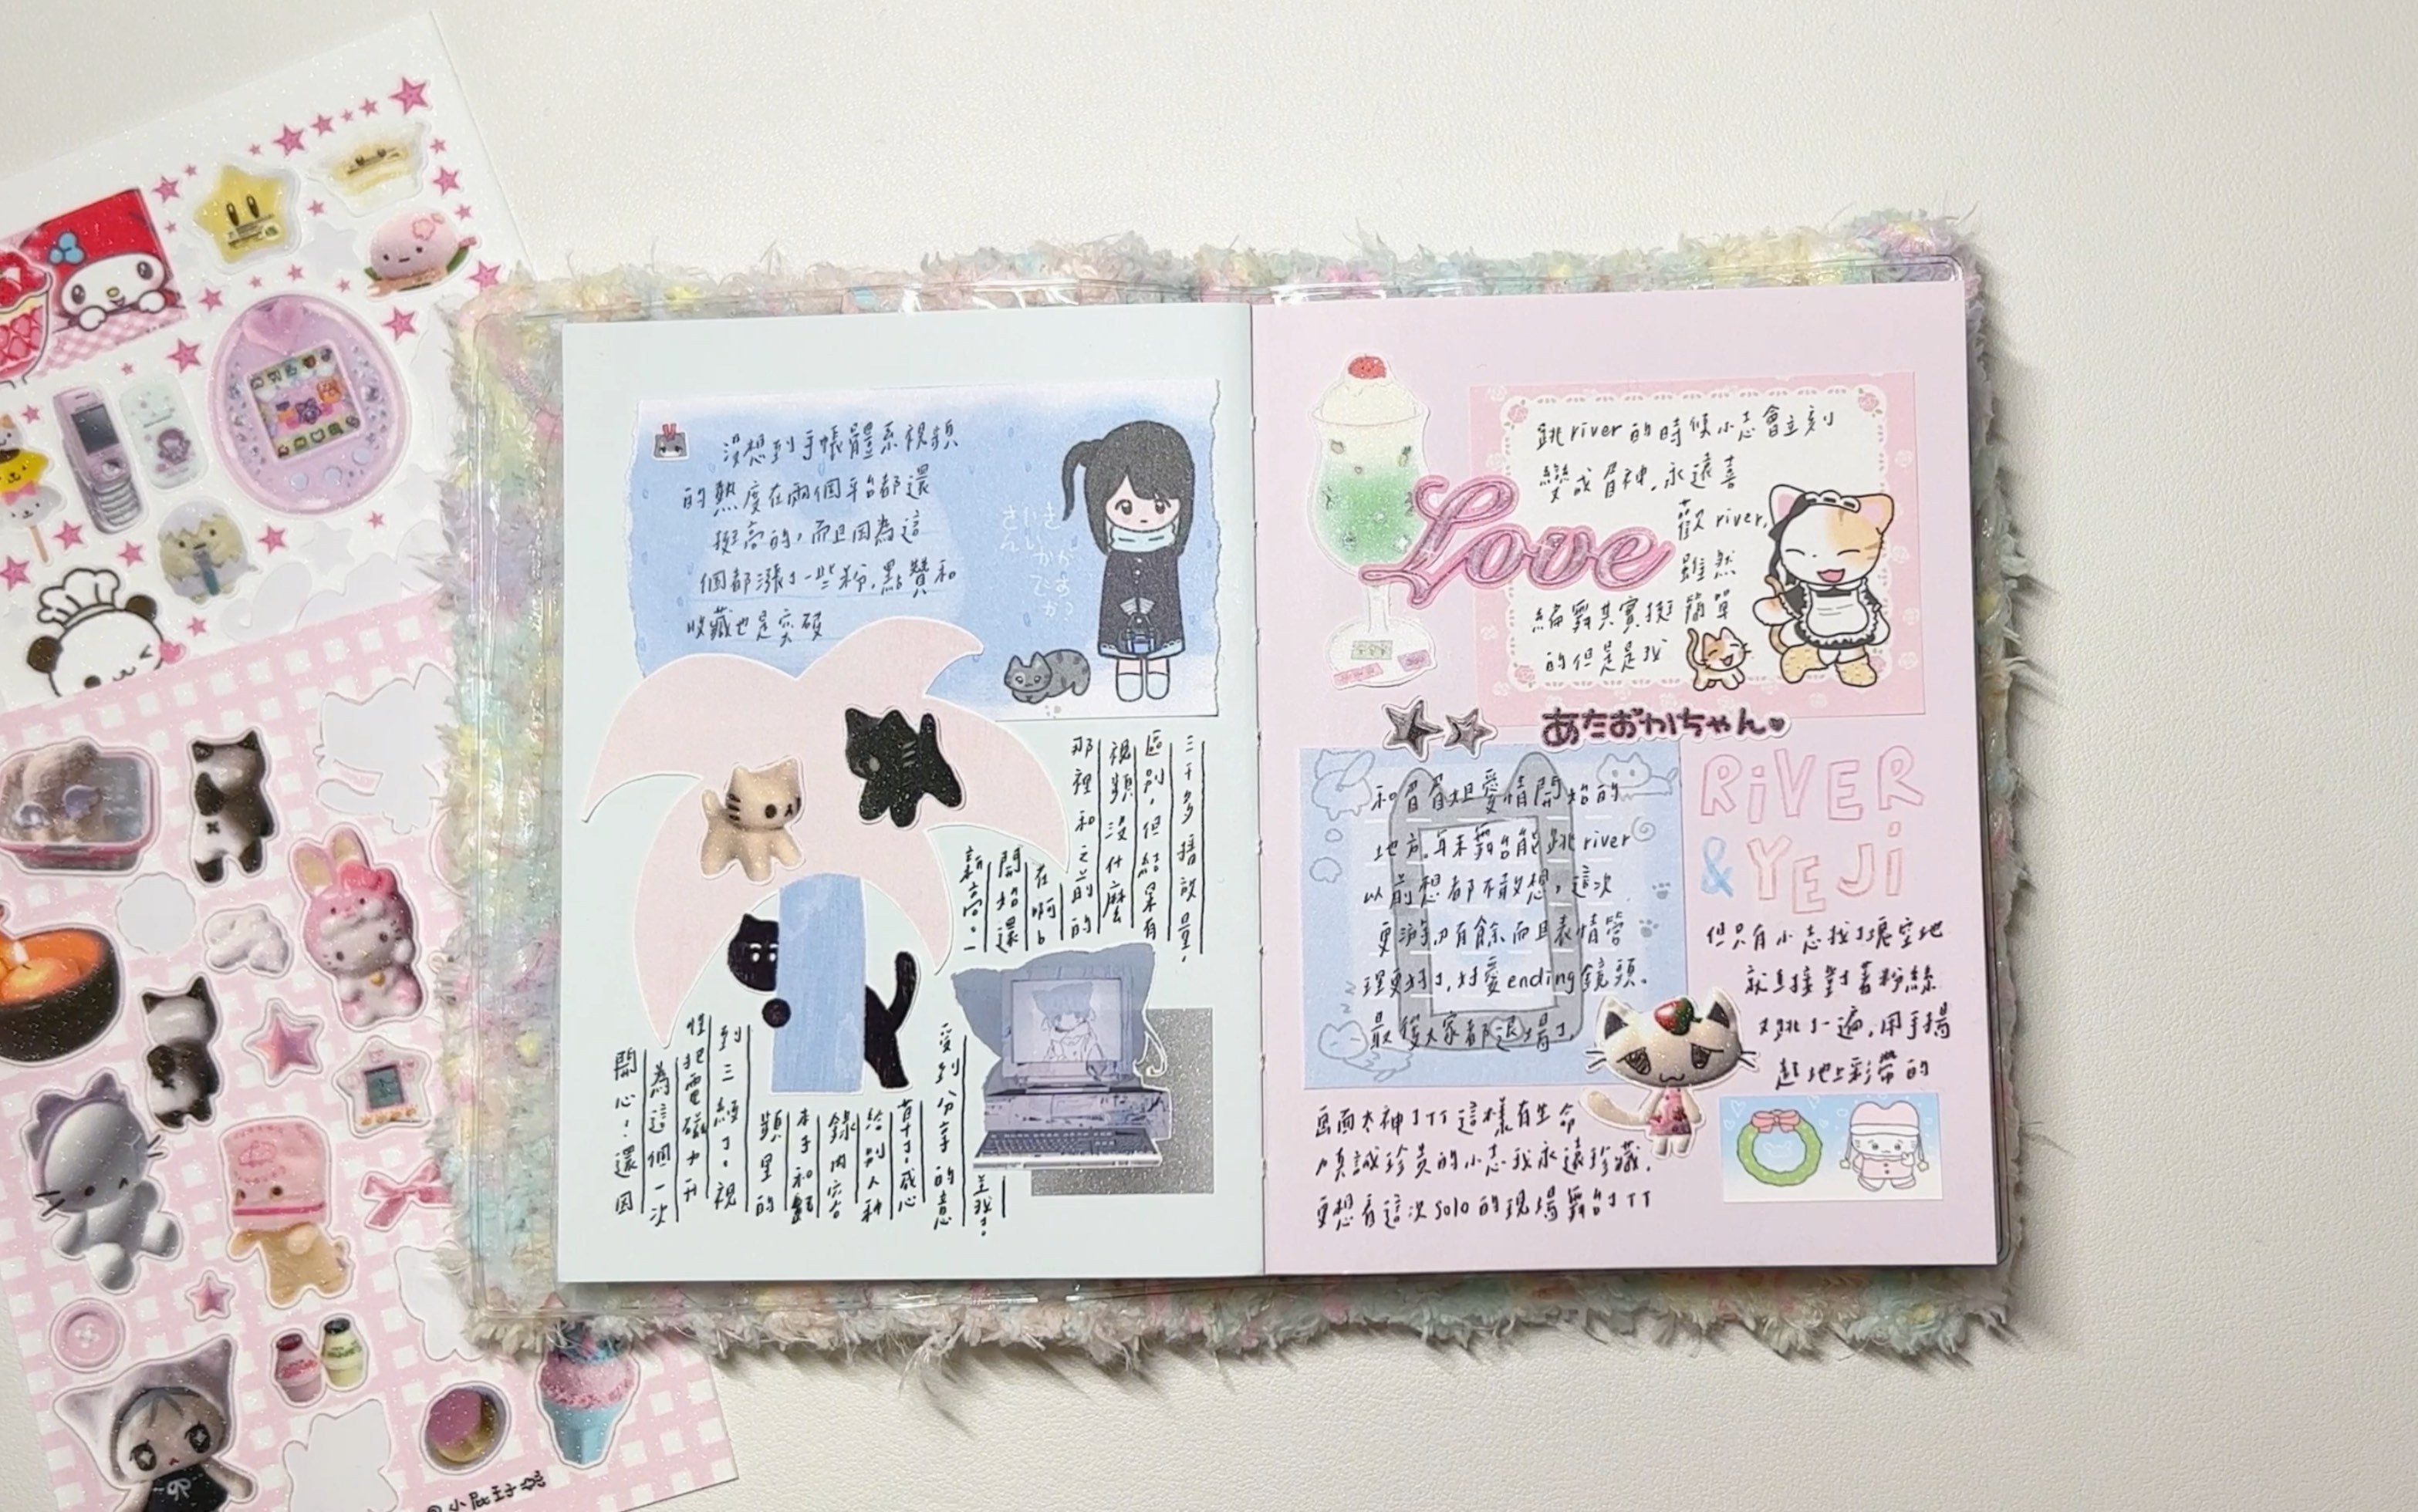 沒想到手帳體系視頻
的熱度在兩個平台都還
挺高的，而且因為這
個都漲了一些粉，點贊和
收藏也是突破
三千多播放量，
區別，但結果有
視頻沒什麼
那裡和之前的
在啊b
開始還
新高。一
受到分享的意
給別人种
錄內容
本子和
頻里的
到三經了。視
性把電磁力升
為這個一次
開心！還因
きいさん
がかいで
あるか？
跳river的時候小志會立刻
變成眉神，永遠喜
歡river，
雖然
編舞其實挺簡單
的但是是我
Love
あたおかちゃん
和眉眉姐愛情開始的
地方，年末舞台能跳river
以前想都不敢想，這次
更游刃有餘而且表情管
理更好了，好愛ending鏡頭。
最後大家都退場了，
RiVER
&YEJi
但只有小志找了塊空地
就直接對著粉絲
又跳了一遍，用手揚
起地上彩帶的
畫面太神了TT這樣有生命
真誠珍貴的小志我永遠珍藏，
更想看這次solo的現場舞台TT
@小屁王子